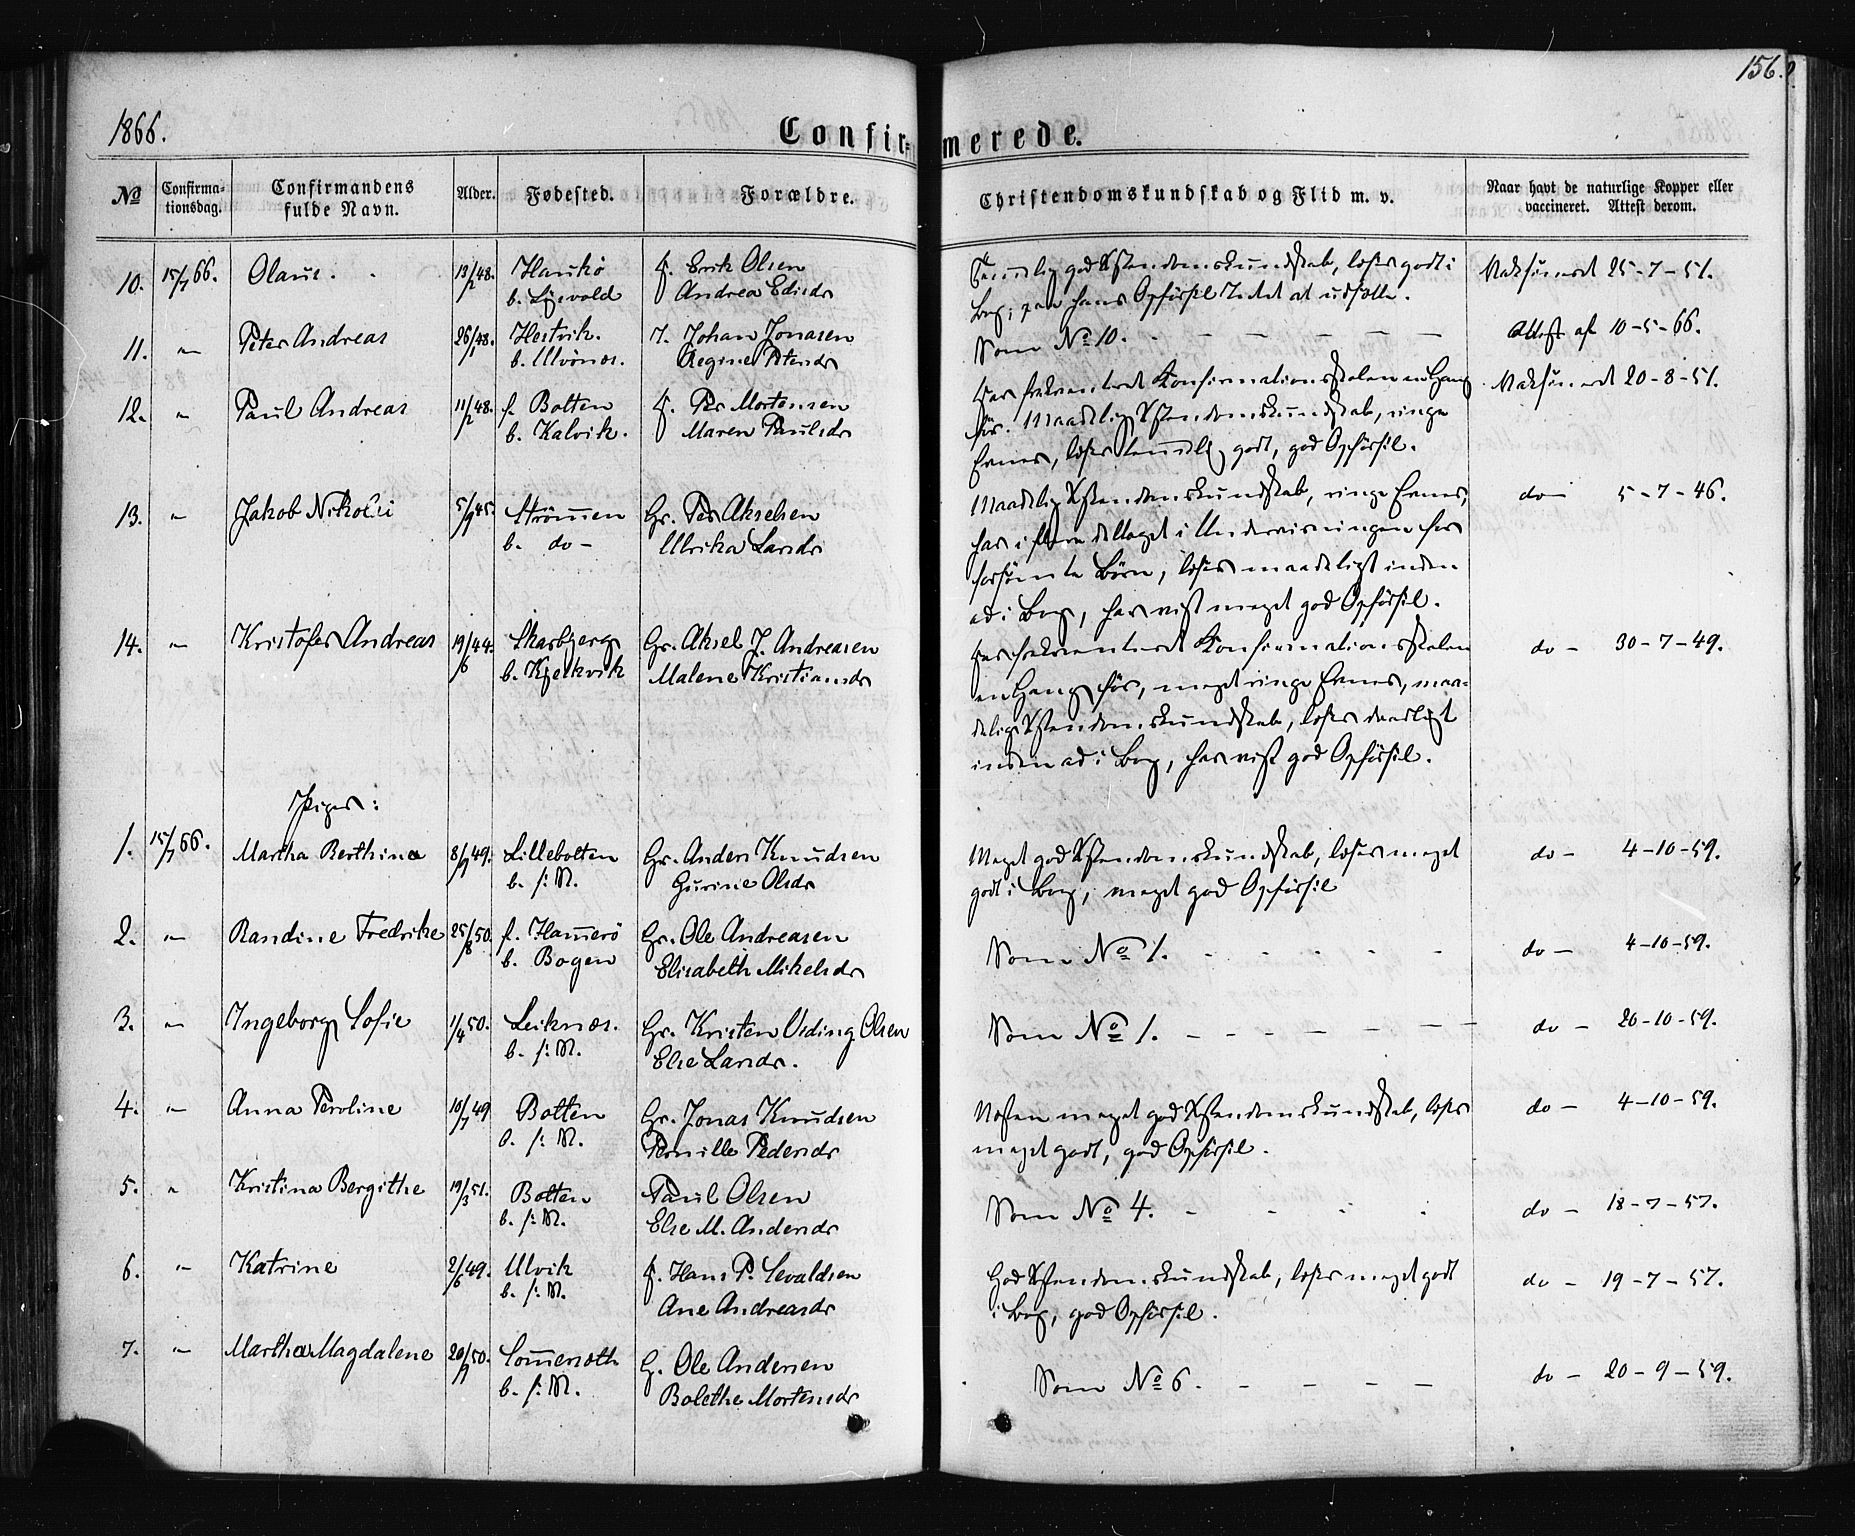 156.
1866.
Confir=
merede.
No
Confirma-
tionsdag.
Confirmandens
fulde Navn.
Alder.
Fødested.
Forældre.
Christendomskundskab og Flid m. v.
Naar havt de naturlige Kopper eller
vaccineret. Attest derom.
10. 15/7 66. Olaus. 13/2 48. Haukö F. Erik Olsen
b. Andrea
god Xstendomskundskab, læser godt i
Bog; paa hans Opførsel Intet at udsætte.
Vaksineret 25-7-51.
11. " Peter Andreas 26/1 48. Hestvik. Johan Jonasen
b. Ulvönæs. Regine Petersdr
Som No 10. - - - - - -
Attest af 10-5-66.
12. " Paul Andreas 11/2 48. f. Botten F. Per Mortensen
b. Kalvik. Maren Paulsdr
Har frekventeret Konfirmationsskolen en Gang
før. Maadelig Xstendomskundskab, ringe
Evner, læser temmelig godt, god Opførsel.
Vaksineret 20-8-51.
13. " Jakob Nikolai 5/9 45. Strömmen Gr. Per Akselsen
b. do - Ulrika Larsdr
Maadelig Xstendomskundskab, ringe Evner,
har i flere deltaget i Undervisningen for
forsømte Børn, læser maadeligt inden
ad i Bog, har vist meget god Opførsel.
do 5-7-46.
14. " Kristofer Andreas 19/6 44. Skarbjerg Gr. Aksel J. Andreasen
b. Kjerkvik Malene Kristiansdr
Har frekventeret Konfirmationsskolen
en Gang før, meget ringe Evner, maa-
delig Xstendomskundskab, læser daarligt
inden ad i Bog, har vist god Opførsel.
do - 30-7-49.
Piger:
1. 15/7 66. Martha Berthina 8/9 49. Lillebotten Gr. Anders Knudsen
b. s: St. Gurine Olsdr
Meget god Xstendomskundskab, læser meget
godt i Bog, meget god Opførsel
do - 4-10-59.
2. " Randine Fredrike 25/8 50. f. Hammerö Gr. Ole Andreasen
b. Bogen Elisabeth Mikelsdr
Som No 1. - - - - -
do - 4-10-59.
3. " Ingeborg Sofie 1/4 50. Leiknæs. Gr. Kristen Olsen
b. s: St. Else Larsdr.
Som No 1. - - - - - -
do - 20-10-59.
4. " Anna Peroline 10/7 49 Botten Gr. Jonas Knudsen
b. s: St. Pernille Pedersdr
Næsten meget god Xstendomskundskab, læser
meget godt, god Opførsel.
do - 4-10-59.
5. " Kristina Bergithe 19/3 51. Botten Paul Olsen
b. s: St. Else M. Andersdr
Som No 4. - - - -
do - 18-7-57.
6. " Katrine 2/6 49. Ulvik F. Hans P. Sevaldsen
b. s: St. Ane Andreasdr
God Xstendomskundskab, læser meget godt
i Bog, god Opførsel.
do - 19-7-57.
7. " Martha Magdalene 20/9 50. Sommerseth G. Ole Andersen
b. s: St. Bolethe Mortensdr
Som No 6. - - - -
do - 20-9-59.